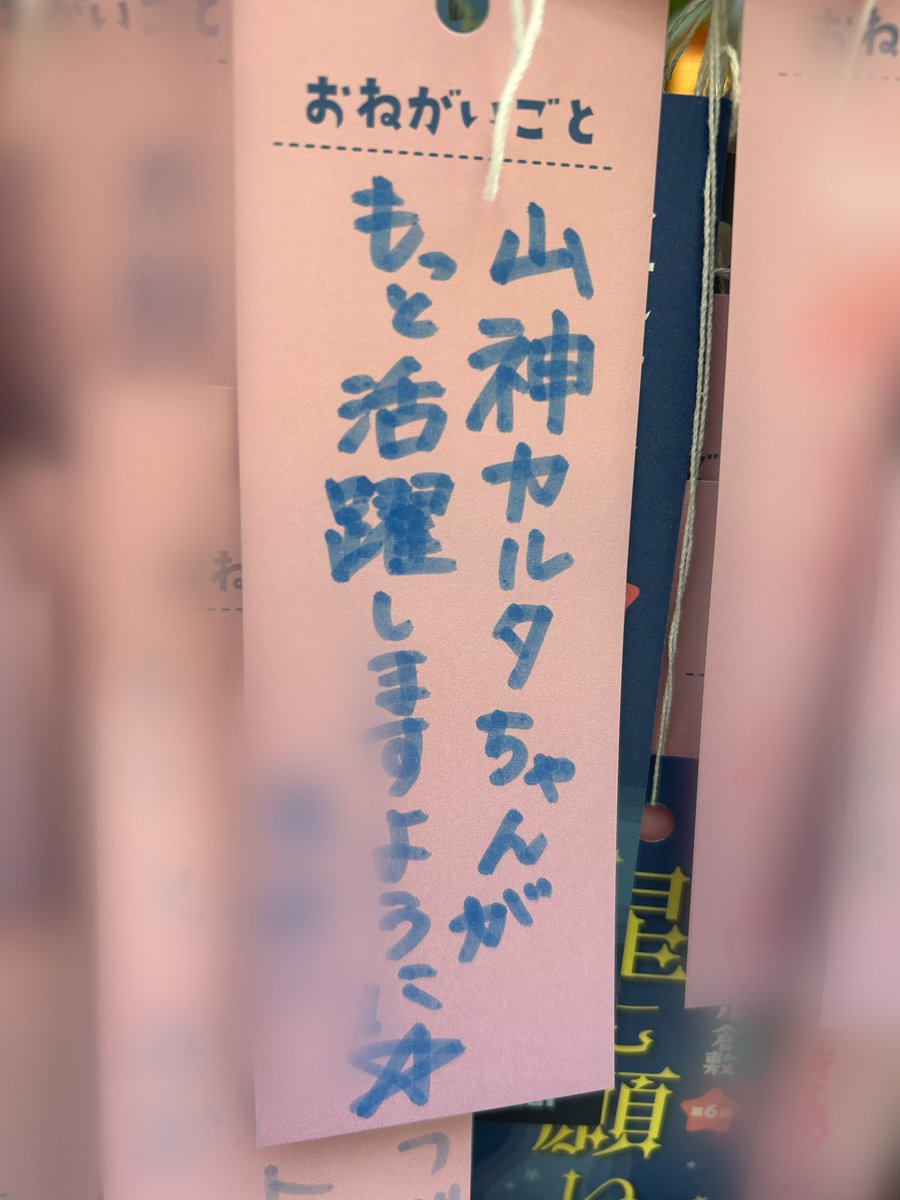 おねがいごと
山神カルタちゃんが
もっと活躍しますように☆
星に願い
倉敷
第6